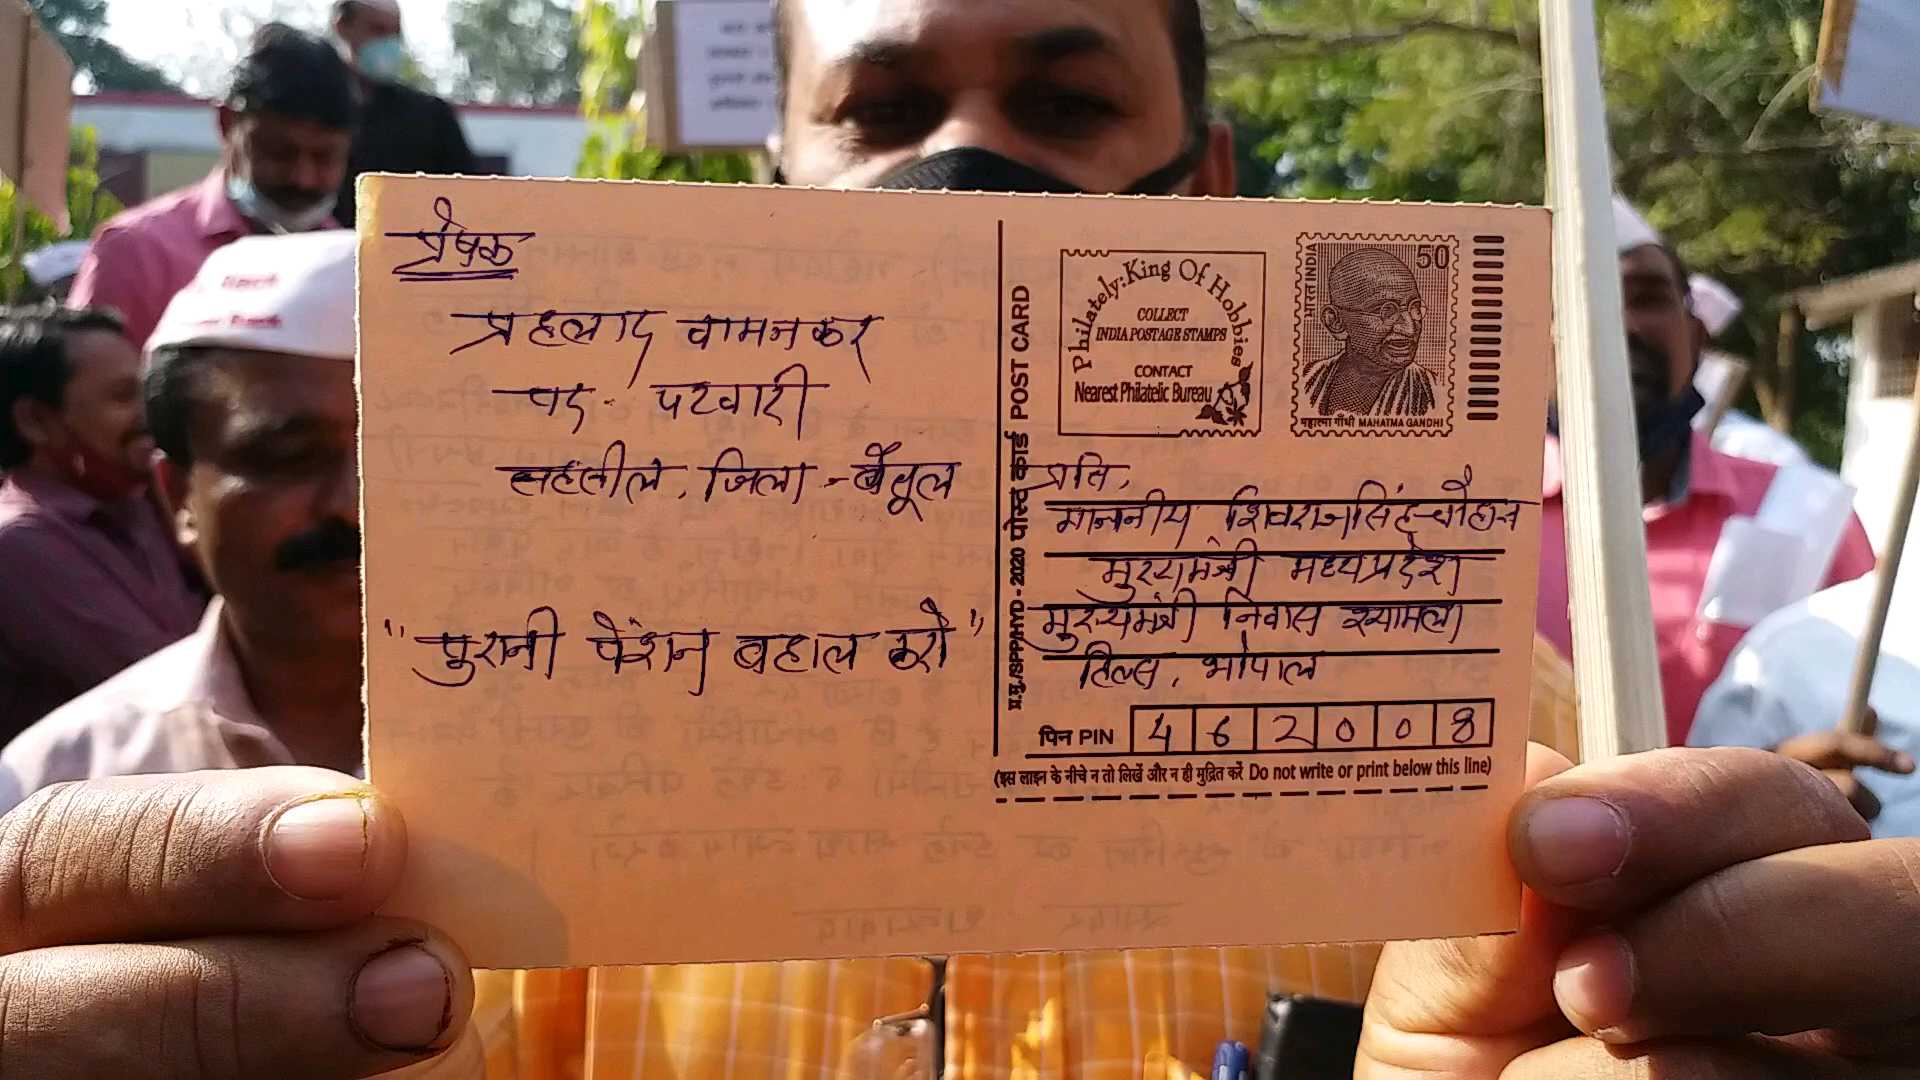 प्रेषक
प्रहलाद वामनकर
पद - पटवारी
तहसील, जिला - बैतूल
"पुरानी पेंशन बहाल करो"
म.मु./SPPHYD - 2020 पोस्ट कार्ड POST CARD
Philately: King Of Hobbies
COLLECT
INDIA POSTAGE STAMPS
CONTACT
Nearest Philatelic Bureau
भारत INDIA
50
महात्मा गाँधी MAHATMA GANDHI
प्रति,
माननीय शिवराजसिंह चौहान
मुख्यमंत्री मध्यप्रदेश
मुख्यमंत्री निवास श्यामला
हिल्स, भोपाल
पिन PIN 462008
(इस लाइन के नीचे न तो लिखें और न ही मुद्रित करें Do not write or print below this line)